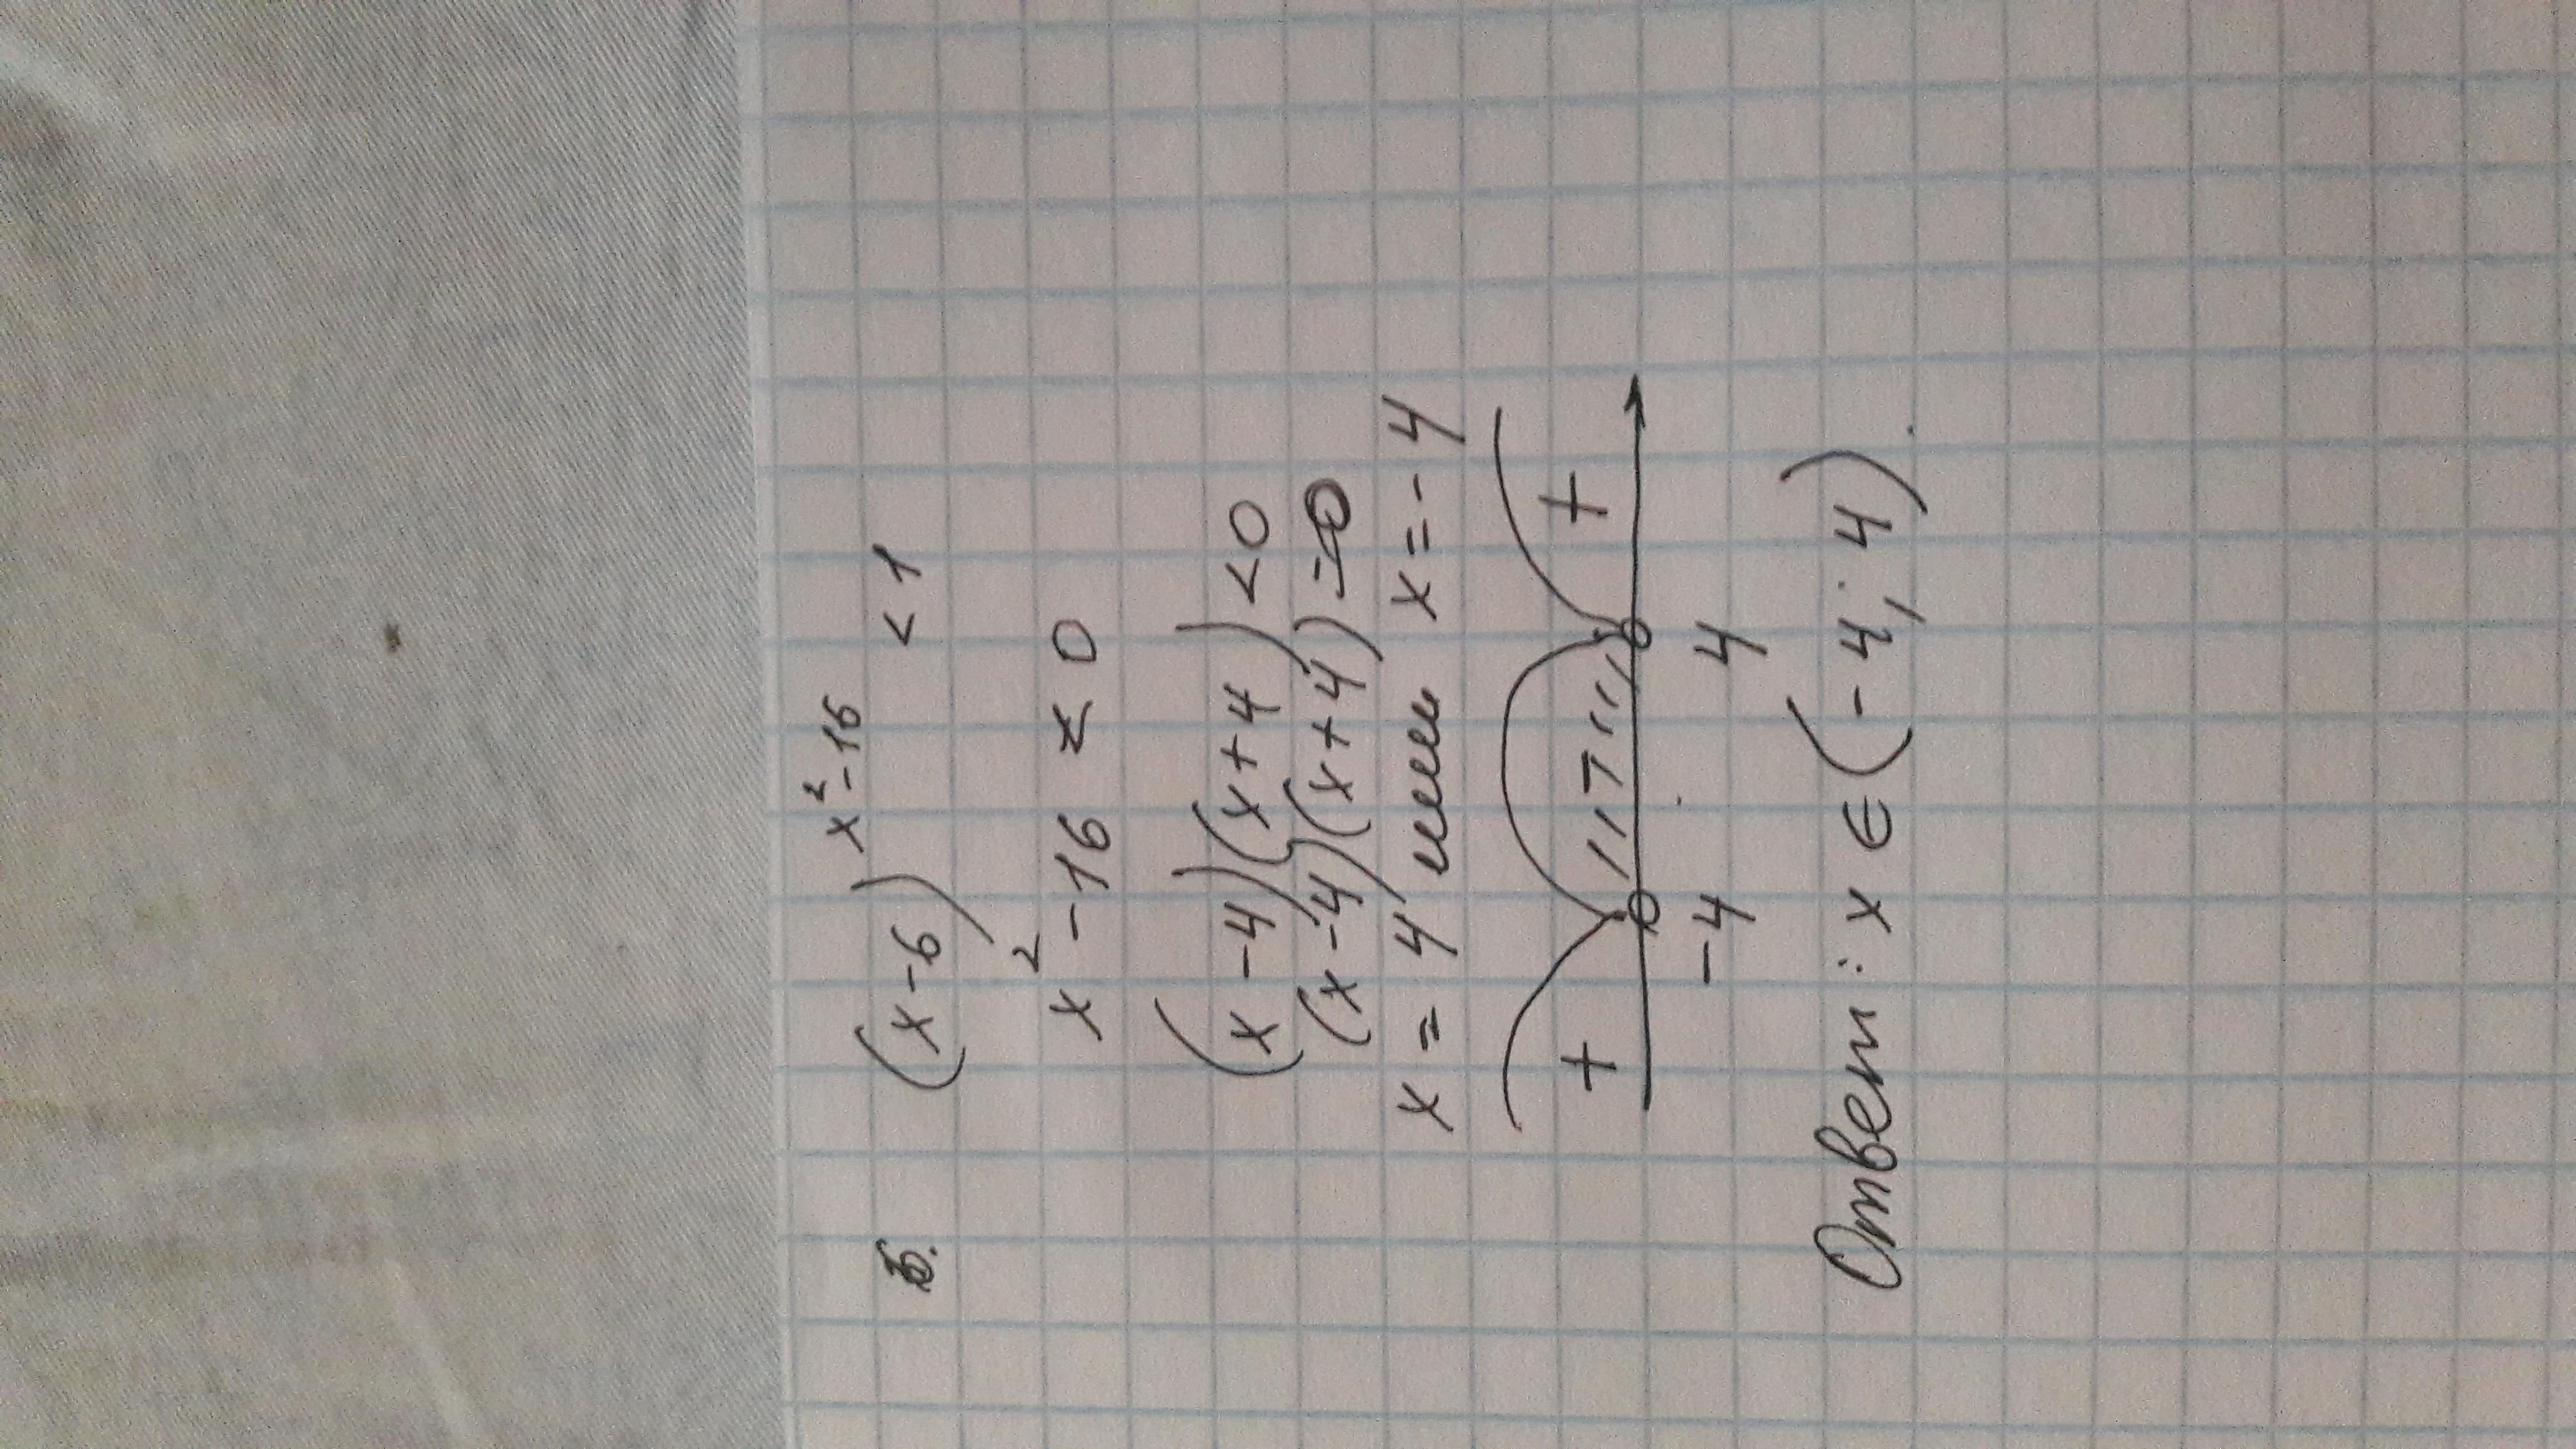 5. (x-6)^{x²-16} < 1
x² - 16 < 0
(x-4)(x+4) < 0
(x-4)(x+4) = 0
x = 4 или x = -4
+ - +
-4 4
Ответ: x ∈ (-4; 4).